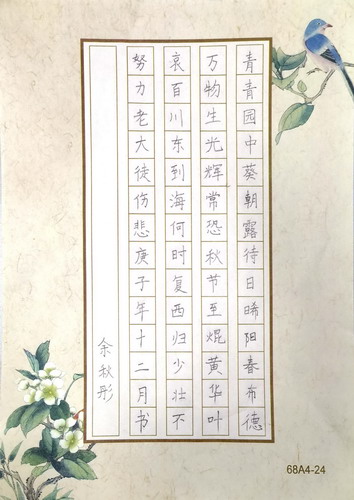 青青园中葵朝露待日晞阳春布德
万物生光辉常恐秋节至焜黄华叶
衰百川东到海何时复西归少壮不
努力老大徒伤悲庚子年十二月书
余秋彤
68A4-24